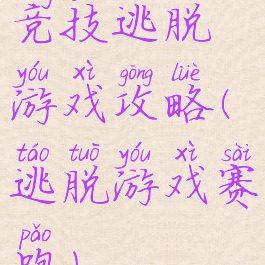 竞技逃脱
yóu xì gōng lüè
游戏攻略(
táo tuō yóu xì sài
逃脱游戏赛
pǎo
跑)